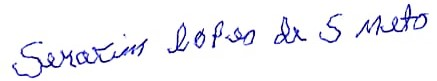 Serafim Lopes de S Neto